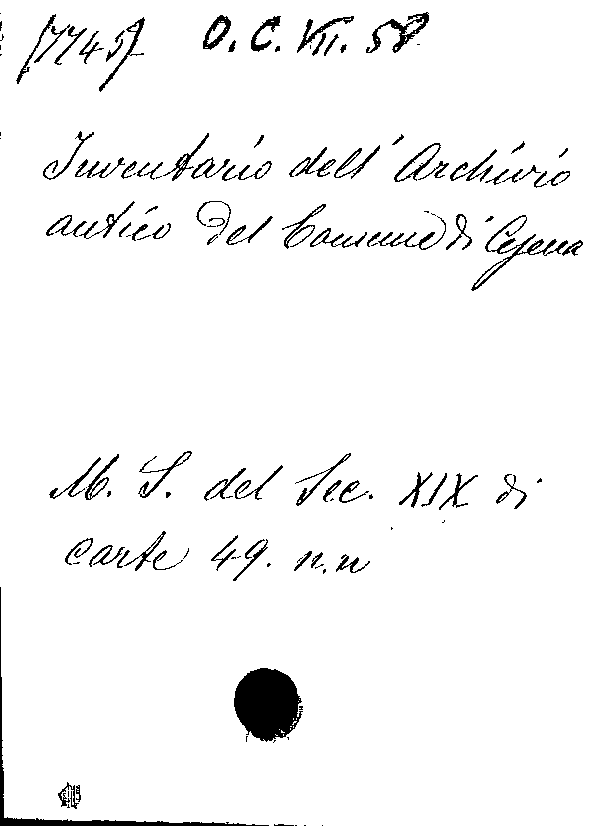 (7745) O. C. VII. 58
Inventario dell' Archivio
antico del Comune di Cesena
M. S. del Sec. XIX di
carte 49. n.n